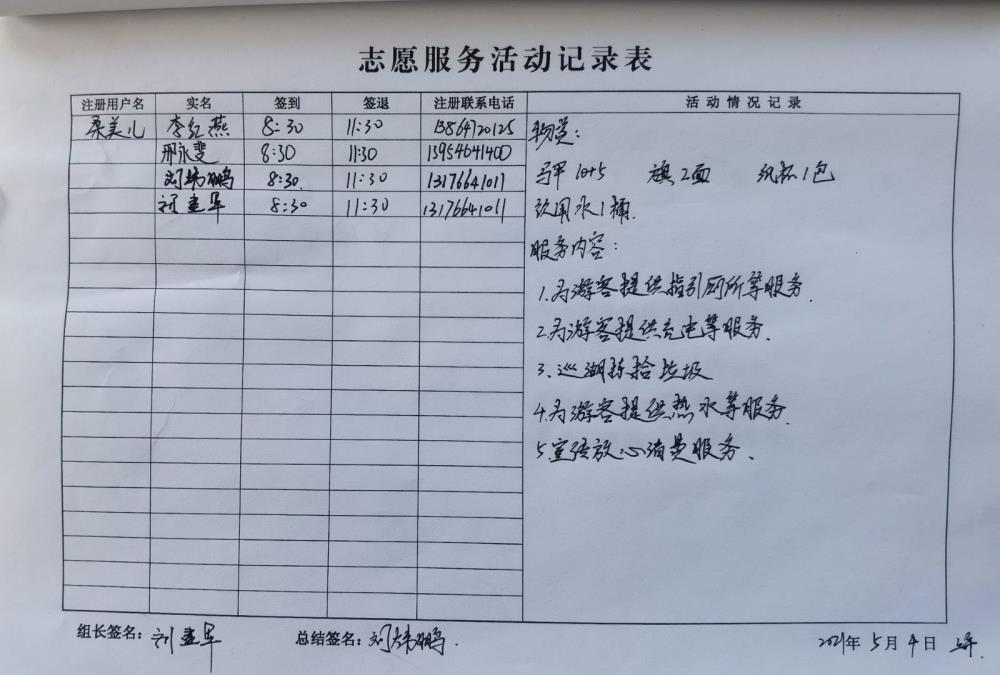 志愿服务活动记录表
注册用户名 实名 签到 签退 注册联系电话 活动情况记录
桑美儿 李红燕 8:30 11:30 13864720125
邢永斐 8:30 11:30 13954641400
刘炜鹏 8:30 11:30 13176641011
刘建军 8:30 11:30 13176641011
物资:
马甲 10+5 旗2面 纸杯1包
饮用水1桶.
服务内容:
1.为游客提供指引厕所等服务.
2.为游客提供充电等服务.
3.巡湖捡拾垃圾
4.为游客提供热水等服务.
5.宣传放心消费服务.
组长签名: 刘建军 总结签名: 刘炜鹏.
2021年 5月 4日 上午.